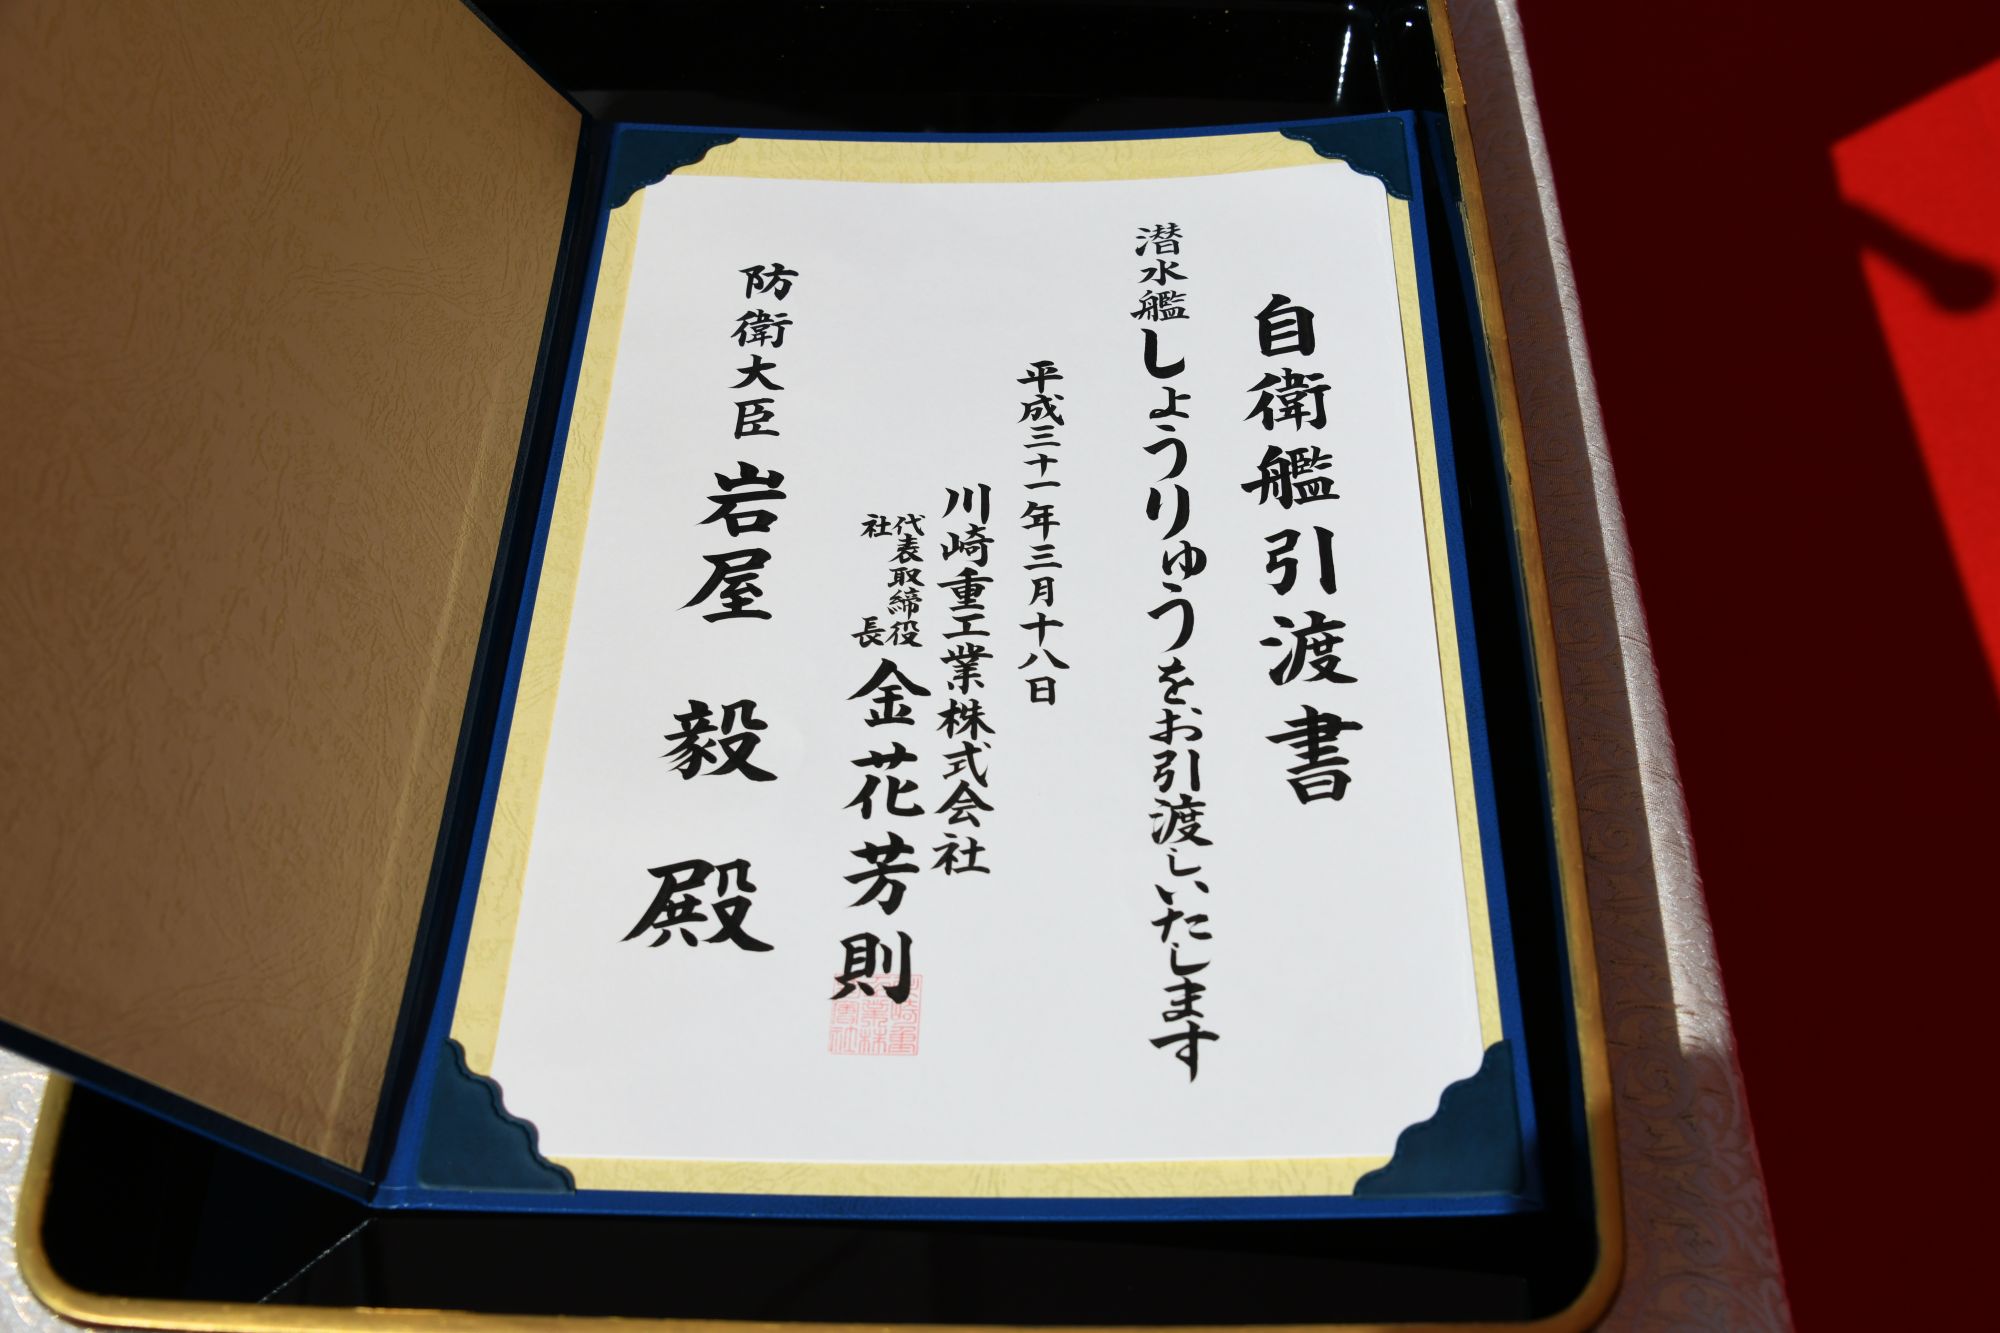 自衛艦引渡書
潜水艦しょうりゅうをお引渡しいたします
平成三十一年三月十八日
川崎重工業株式会社
代表取締役
社長
金花芳則
防衛大臣 岩屋 毅 殿